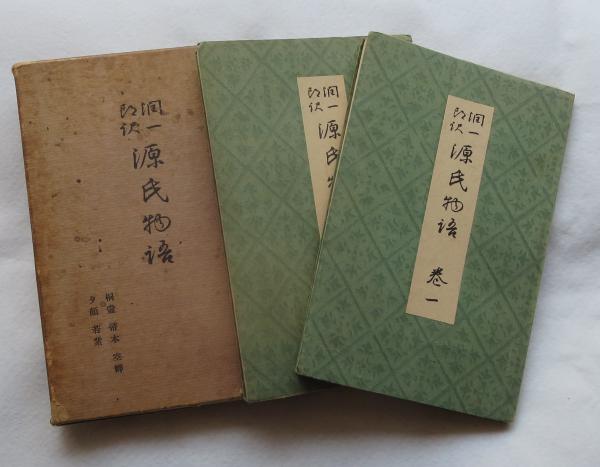 潤一
郎訳
源氏物語
桐壺 帚木 空蝉
夕顔 若紫
潤一
郎訳
源氏物
潤一
郎訳
源氏物語
巻一